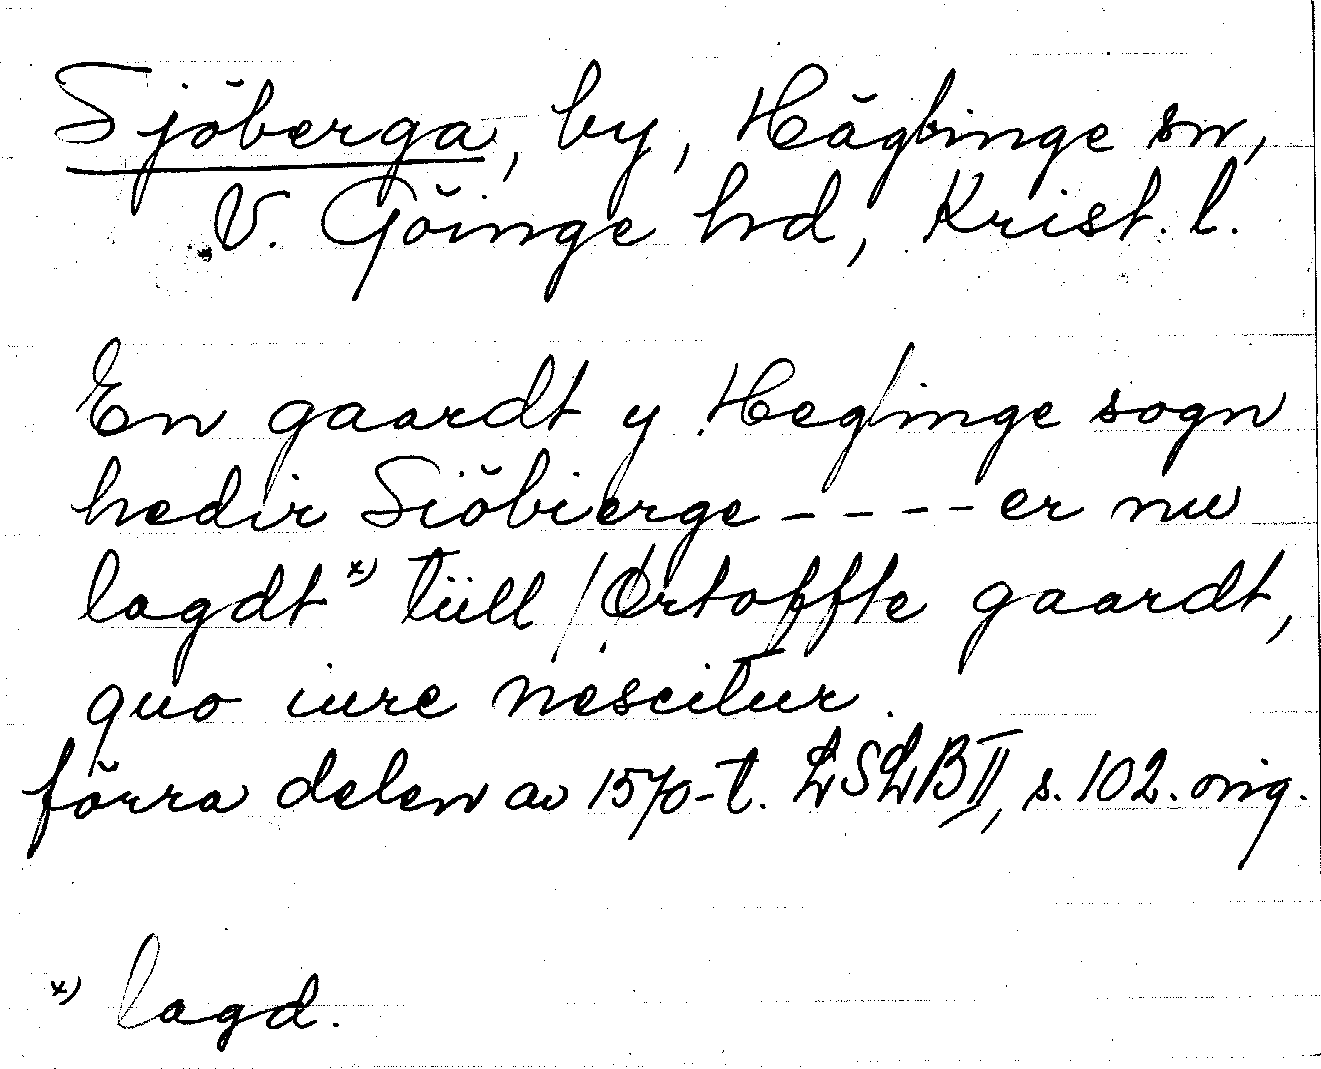 Sjöberga, by, Häglinge sn,
V. Göinge hd, Krist. l.
En gaardt y Heglinge sogn
hedir Siöbierge - - - - er nu
lagdt x) tüll / Ørtoffte gaardt,
quo iure nescitur.
förra delen av 1570-t. LSLB II, s. 102. orig.
x) lagd.